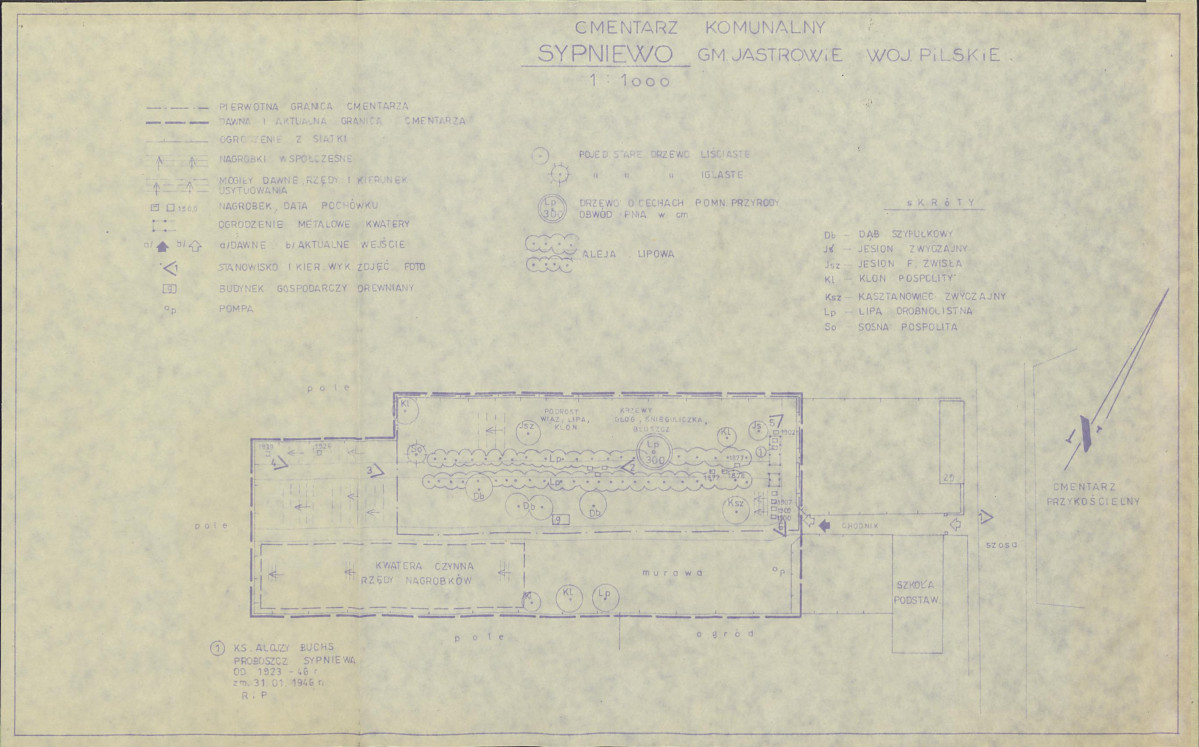 CMENTARZ KOMUNALNY
SYPNIEWO GM JASTROWIE WOJ. PILSKIE
1:1000
PIERWOTNA GRANICA CMENTARZA
DAWNA I AKTUALNA GRANICA CMENTARZA
OGRODZENIE Z SIATKI
NAGROBKI WSPÓŁCZESNE
MOGIŁY DAWNE, RZĘDY I KIERUNEK
USYTUOWANIA
1905 NAGROBEK, DATA POCHÓWKU
OGRODZENIE METALOWE KWATERY
a/ b/ a/DAWNE b/AKTUALNE WEJŚCIE
STANOWISKO I KIER. WYK. ZDJĘĆ FOTO
g BUDYNEK GOSPODARCZY DREWNIANY
p POMPA
POJED STARE DRZEWO LIŚCIASTE
" " " IGLASTE
Lp 300 DRZEWO O CECHACH POMN. PRZYRODY,
OBWÓD PNIA w cm
ALEJA LIPOWA
SKRÓTY
Db – DĄB SZYPUŁKOWY
Jś – JESION ZWYCZAJNY
Jsz – JESION F. ZWISŁA
Kl – KLON POSPOLITY
Ksz – KASZTANOWIEC ZWYCZAJNY
Lp – LIPA DROBNOLISTNA
So – SOSNA POSPOLITA
pole
Kl
PODROSTY
WIĄZ, LIPA,
KLON
KRZEWY
Jsz
Lp
300
Kl
Jś
5
1
So
Lp
2
1877
4
3
Lp
Db
Db
Db
g
Ksz
1907
pole
CHODNIK
26
szosa
CMENTARZ
PRZYKOŚCIELNY
KWATERA CZYNNA
RZĘDY NAGROBKÓW
murawa
p
SZKOŁA
PODSTAW.
Kl
Kl
Lp
pole
ogród
1 KS. ALOJZY BUCHS
PROBOSZCZ SYPNIEWA
OD 1923 - 46 r
zm. 31 01 1946 r.
R i P